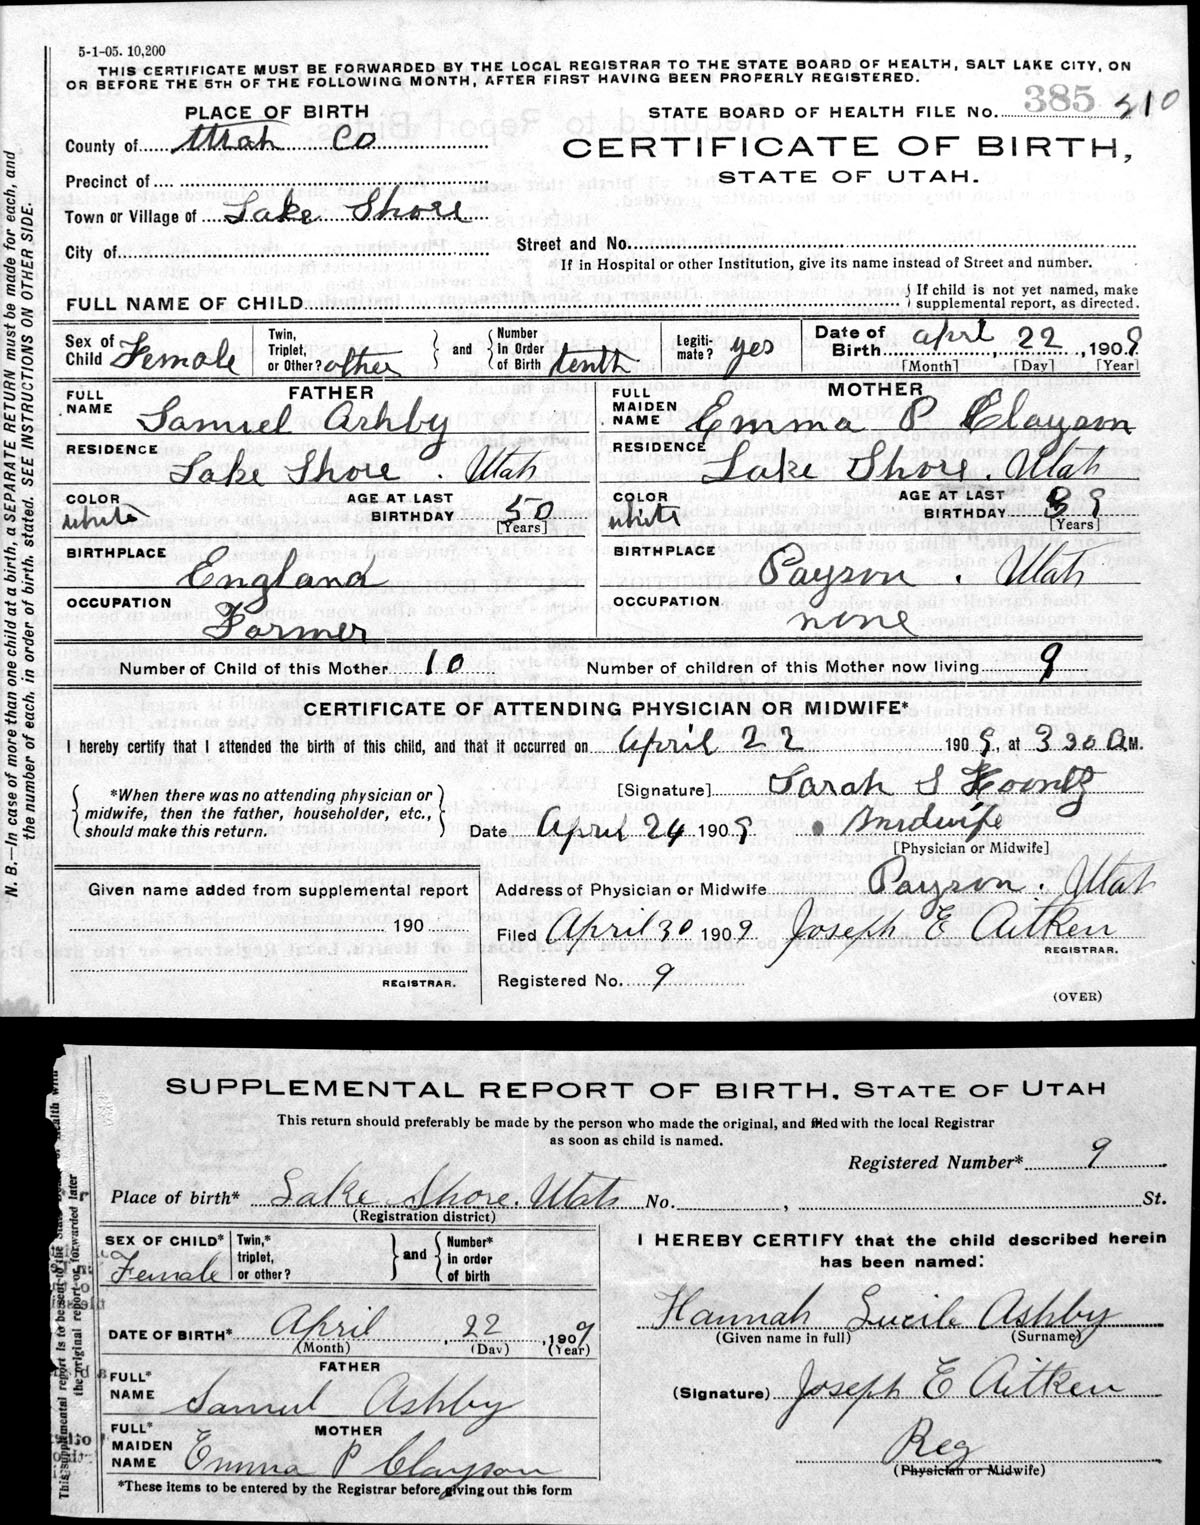 5-1-05. 10,200
THIS CERTIFICATE MUST BE FORWARDED BY THE LOCAL REGISTRAR TO THE STATE BOARD OF HEALTH, SALT LAKE CITY, ON
OR BEFORE THE 5TH OF THE FOLLOWING MONTH, AFTER FIRST HAVING BEEN PROPERLY REGISTERED.
PLACE OF BIRTH
STATE BOARD OF HEALTH FILE No. 385 210
County of Utah Co
CERTIFICATE OF BIRTH,
STATE OF UTAH.
Precinct of
Town or Village of Lake Shore
City of
Street and No.
If in Hospital or other Institution, give its name instead of Street and number.
FULL NAME OF CHILD
If child is not yet named, make supplemental report, as directed.
Sex of Child Female
Twin, Triplet, or Other? other and Number in Order of Birth tenth
Legitimate? yes
Date of Birth April, 22, 1909
[Month] [Day] [Year]
FATHER
MOTHER
FULL NAME Samuel Ashby
FULL MAIDEN NAME Emma P Clayson
RESIDENCE Lake Shore. Utah
RESIDENCE Lake Shore. Utah
COLOR white AGE AT LAST BIRTHDAY 50 [Years]
COLOR white AGE AT LAST BIRTHDAY 39 [Years]
BIRTHPLACE England
BIRTHPLACE Payson. Utah
OCCUPATION Farmer
OCCUPATION none
Number of Child of this Mother 10 Number of children of this Mother now living 9
CERTIFICATE OF ATTENDING PHYSICIAN OR MIDWIFE*
I hereby certify that I attended the birth of this child, and that it occurred on April 22 1909, at 3 30 A M.
*When there was no attending physician or midwife, then the father, householder, etc., should make this return.
[Signature] Sarah S Koontz
Date April 24 1909 Midwife
[Physician or Midwife]
Given name added from supplemental report
190
REGISTRAR.
Address of Physician or Midwife Payson. Utah
Filed April 30 1909 Joseph E Aitken
REGISTRAR.
Registered No. 9
(OVER)
N. B.—In case of more than one child at a birth, a SEPARATE RETURN must be made for each, and
the number of each, in order of birth, stated. SEE INSTRUCTIONS ON OTHER SIDE.
SUPPLEMENTAL REPORT OF BIRTH, STATE OF UTAH
This return should preferably be made by the person who made the original, and filed with the local Registrar
as soon as child is named.
Registered Number* 9
Place of birth* Lake Shore. Utah No. , St.
(Registration district)
SEX OF CHILD* Female
Twin,* triplet, or other? and Number* in order of birth
I HEREBY CERTIFY that the child described herein
has been named:
DATE OF BIRTH* April, 22, 1909
(Month) (Day) (Year)
Hannah Lucile Ashby
(Given name in full) (Surname)
FATHER
FULL* NAME Samuel Ashby
(Signature) Joseph E Aitken
MOTHER
FULL* MAIDEN NAME Emma P Clayson
Reg
(Physician or Midwife)
*These items to be entered by the Registrar before giving out this form
This supplemental report is to be sent to the State
the original report or forwarded later